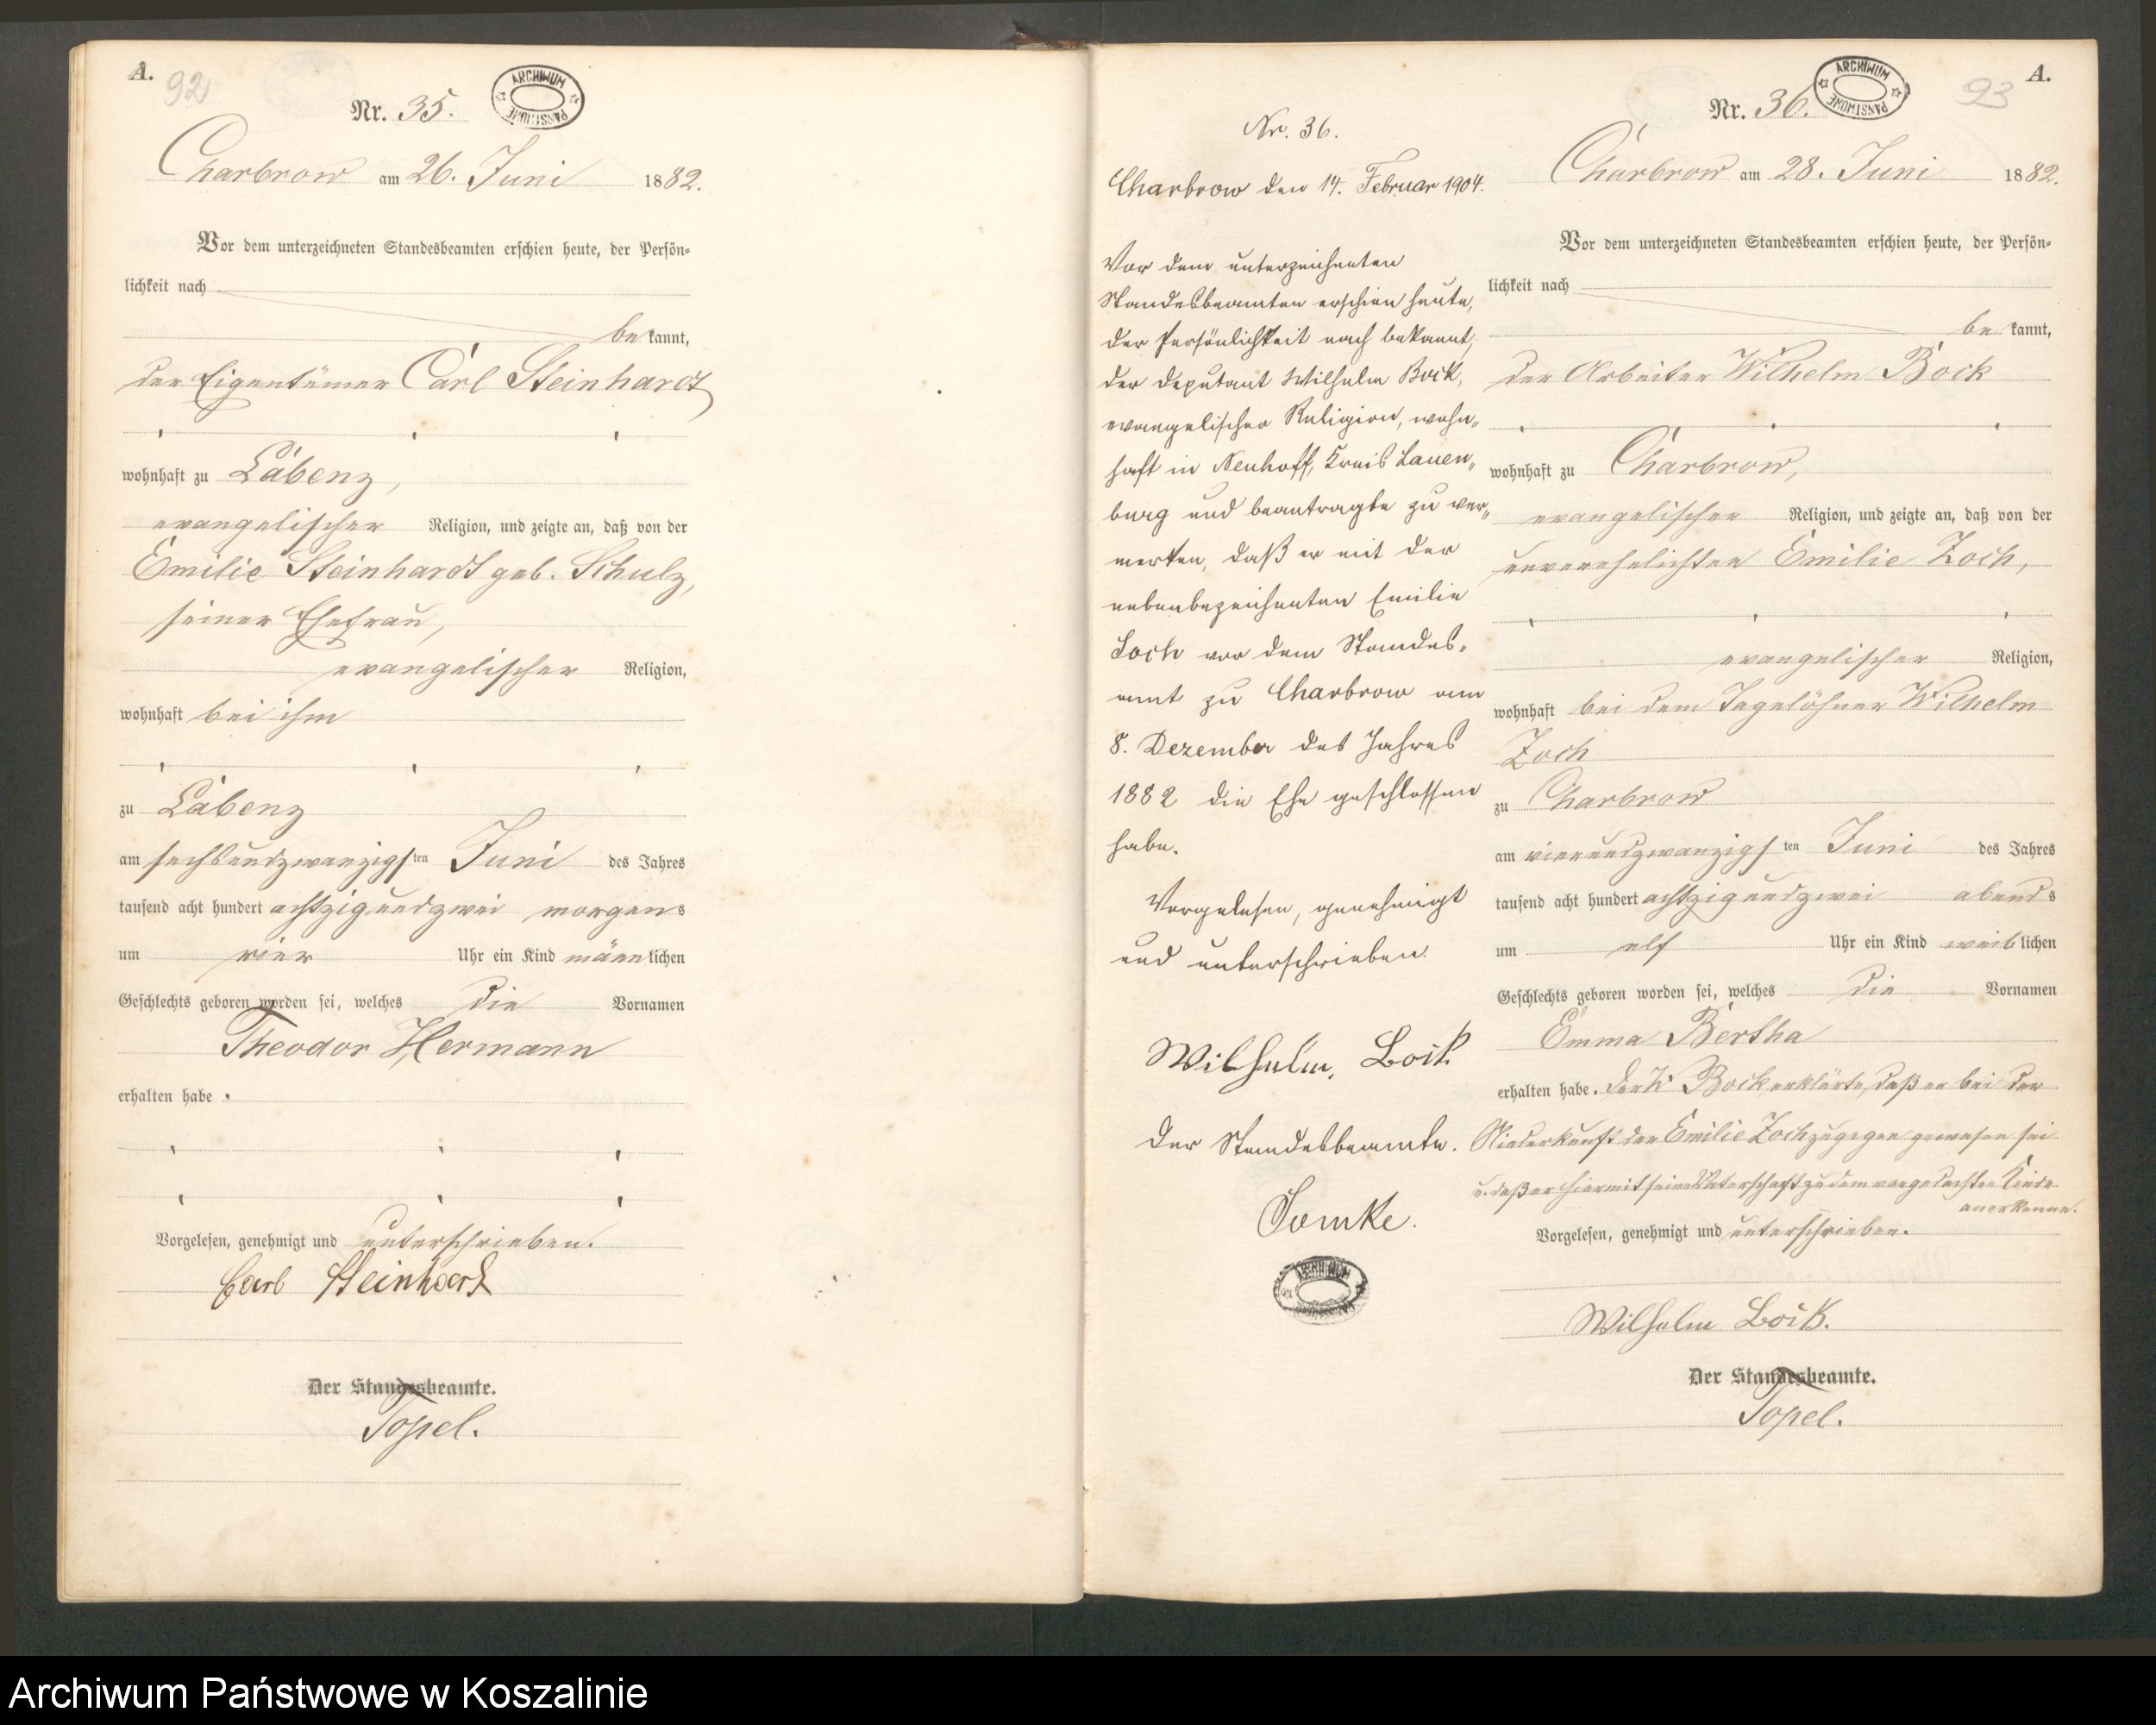 A.
92
Nr. 35.
ARCHIWUM PAŃSTWOWE
Charbrow am 26. Juni 1882.
Vor dem unterzeichneten Standesbeamten erschien heute, der Persön-
lichkeit nach
be kannt,
der Eigentümer Carl Steinhardt
wohnhaft zu Labenz,
evangelischer Religion, und zeigte an, daß von der
Emilie Steinhardt geb. Schulz,
seiner Ehefrau,
evangelischer Religion,
wohnhaft bei ihm
zu Labenz
am sechsundzwanzigsten Juni des Jahres
tausend acht hundert achtzig und zwei morgens
um vier Uhr ein Kind männlichen
Geschlechts geboren worden sei, welches die Vornamen
Theodor Hermann
erhalten habe.
Vorgelesen, genehmigt und unterschrieben.
Carl Steinhardt
Der Standesbeamte.
Topel.
Nr. 36.
Charbrow den 14. Februar 1904.
Vor dem unterzeichneten
Standesbeamten erschien heute,
der Persönlichkeit nach bekannt,
der Deputant Wilhelm Bock,
evangelischer Religion, wohn-
haft in Neuhoff, Kreis Lauen-
burg und beantragte zu ver-
merken, daß er mit der
nebenbezeichneten Emilie
Zoch vor dem Standes-
amt zu Charbrow am
8. Dezember des Jahres
1882 die Ehe geschlossen
habe.
Vorgelesen, genehmigt
und unterschrieben.
Wilhelm Bock
Der Standesbeamte.
ARCHIWUM
A.
93
Nr. 36.
ARCHIWUM PAŃSTWOWE
Charbrow am 28. Juni 1882.
Vor dem unterzeichneten Standesbeamten erschien heute, der Persön-
lichkeit nach
be kannt,
der Arbeiter Wilhelm Bock
wohnhaft zu Charbrow,
evangelischer Religion, und zeigte an, daß von der
unverehelichten Emilie Zoch,
evangelischer Religion,
wohnhaft bei dem Tagelöhner Wilhelm
Zoch
zu Charbrow
am vierundzwanzigsten Juni des Jahres
tausend acht hundert achtzig und zwei abends
um elf Uhr ein Kind weiblichen
Geschlechts geboren worden sei, welches die Vornamen
Emma Bertha
erhalten habe. Der W. Bock erklärte, daß er bei der
Niederkunft der Emilie Zoch zugegen gewesen sei
u. daß er hiermit seine Vaterschaft zu dem vorgedachten Kinde
anerkenne.
Vorgelesen, genehmigt und unterschrieben.
Wilhelm Bock.
Der Standesbeamte.
Topel.
Archiwum Państwowe w Koszalinie